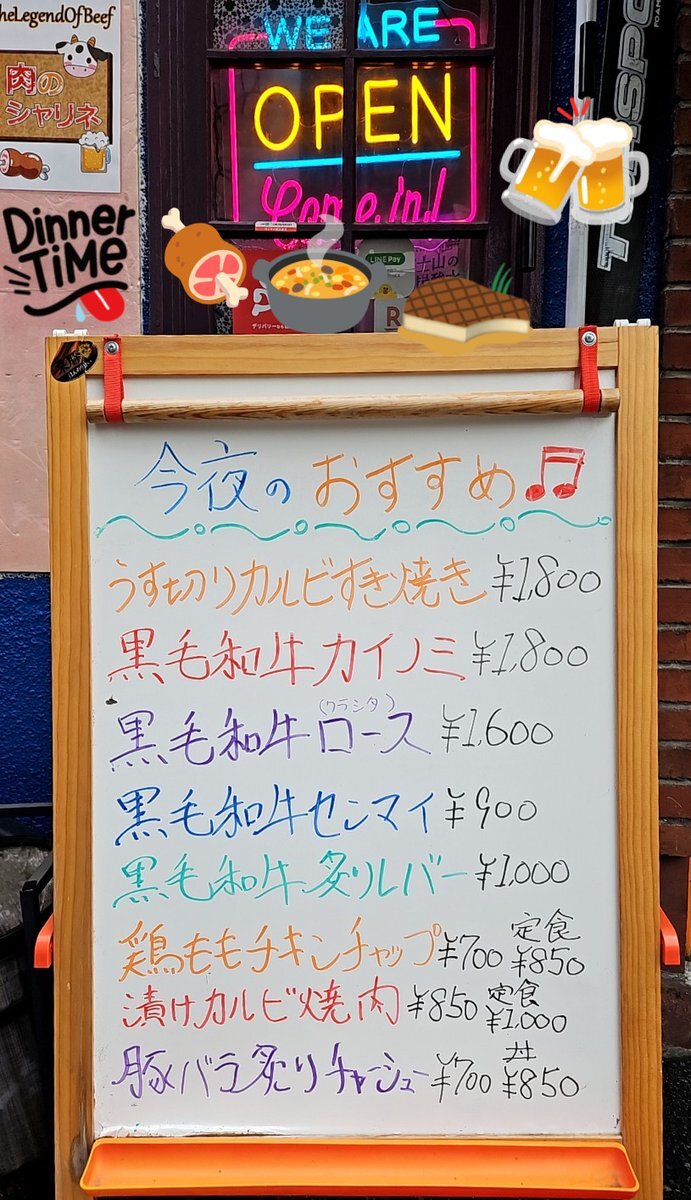 TheLegendOfBeef
肉の
シャリネ
WE ARE
OPEN
Come in!
Dinner
TiME
LINE Pay
今夜のおすすめ
うす切りカルビすき焼き ¥1,800
黒毛和牛カイノミ ¥1,800
黒毛和牛ロース(クラシタ) ¥1,600
黒毛和牛センマイ ¥900
黒毛和牛炙りレバー ¥1,000
鶏ももチキンチャップ ¥700 定食 ¥850
漬けカルビ焼肉 ¥850 定食 ¥1,000
豚バラ炙りチャーシュー ¥700 丼 ¥850